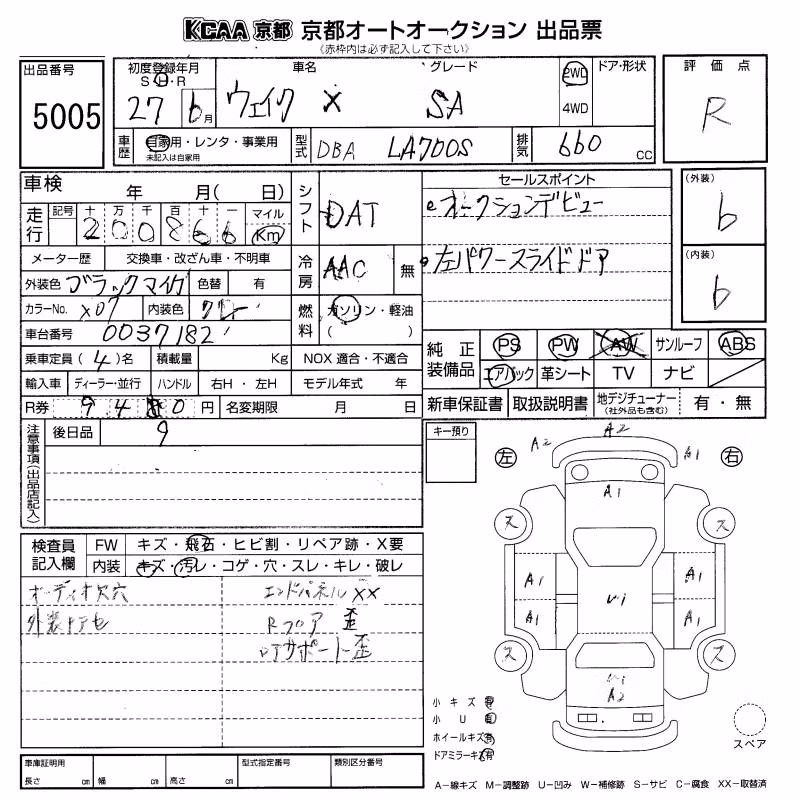 KCAA 京都 京都オートオークション 出品票
《赤枠内は必ず記入して下さい》
出品番号
5005
初度登録年月 車名 グレード 2WD ドア・形状 評価点
S・H・R
27 6月 ウェイク X SA 4WD R
車歴 自家用・レンタ・事業用 型式 DBA LA700S 排気 660 CC
未記入は自家用
車検 年 月( 日) シフト DAT セールスポイント (外装)
走行 記号 十 万 千 百 十 一 マイル オークションデビュー b
200866 Km
メーター歴 交換車・改ざん車・不明車 冷房 AAC 無 左パワースライドドア (内装)
外装色 ブラックマイカ 色替 有 b
カラーNo. X07 内装色 グレー 燃料 ガソリン・軽油
車台番号 0037182 ( )
乗車定員 (4)名 積載量 Kg NOX 適合・不適合 純正装備品 PS PW AW サンルーフ ABS
輸入車 ディーラー・並行 ハンドル 右H・左H モデル年式 年 エアバック 革シート TV ナビ
R券 円 名変期限 月 日 新車保証書 取扱説明書 地デジチューナー 有・無
(社外品も含む)
注意事項(出品店記入) 後日品 9 キー預り
左 右
A2 A2 A1
A1
ス ス
A1 A1
A1 A1
ス ス
A2
検査員記入欄 FW キズ・飛石・ヒビ割・リペア跡・X要
内装 キズ・汚レ・コゲ・穴・スレ・キレ・破レ
オーディオ欠穴 エンドパネルXX
外装キアセ Rフロア 歪
アサポート歪
小キズ 有
小U 有
ホイールキズ 有
ドアミラーキズ 有
スペア
車庫証明用 型式指定番号 類別区分番号
長さ cm 幅 cm 高さ cm
A−線キズ M−調整跡 U−凹み W−補修跡 S−サビ C−腐食 XX−取替済